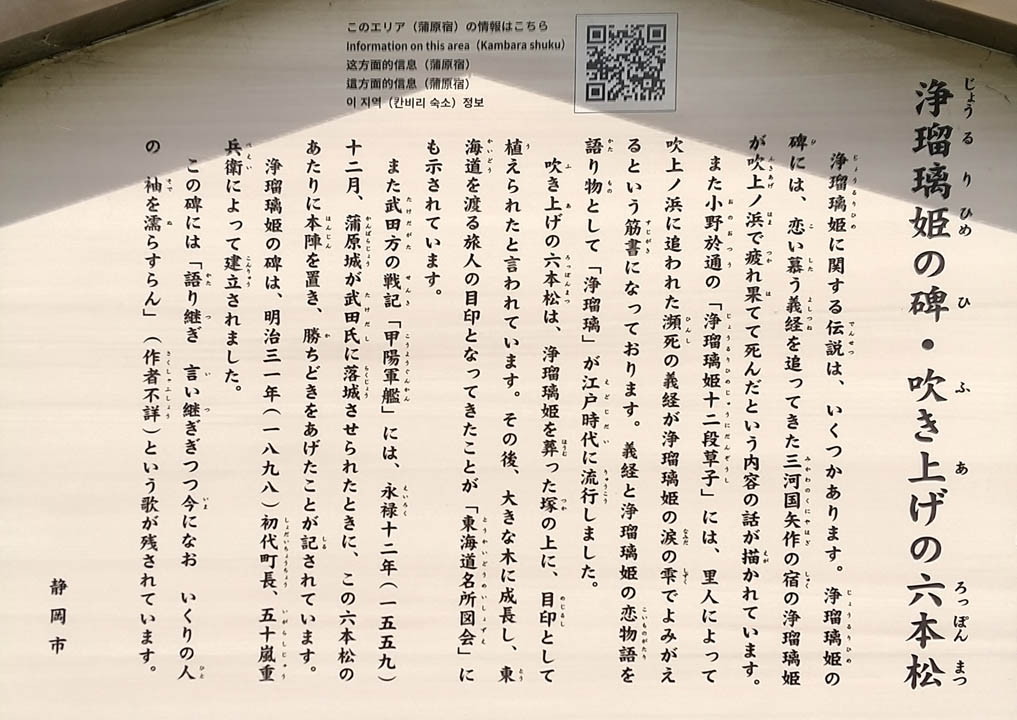 このエリア（蒲原宿）の情報はこちら
Information on this area（Kambara shuku）
这方面的信息（蒲原宿）
這方面的信息（蒲原宿）
이 지역（칸비리 숙소）정보
浄瑠璃姫の碑・吹き上げの六本松
浄瑠璃姫に関する伝説は、いくつかあります。浄瑠璃姫の
碑には、恋い慕う義経を追ってきた三河国矢作の宿の浄瑠璃姫
が吹上ノ浜で疲れ果てて死んだという内容の話が描かれています。
また小野於通の「浄瑠璃姫十二段草子」には、里人によって
吹上ノ浜に追われた瀕死の義経が浄瑠璃姫の涙の雫でよみがえ
るという筋書になっております。義経と浄瑠璃姫の恋物語を
語り物として「浄瑠璃」が江戸時代に流行しました。
吹き上げの六本松は、浄瑠璃姫を葬った塚の上に、目印として
植えられたと言われています。その後、大きな木に成長し、東
海道を渡る旅人の目印となってきたことが「東海道名所図会」に
も示されています。
また武田方の戦記「甲陽軍艦」には、永禄十二年（一五五九）
十二月、蒲原城が武田氏に落城させられたときに、この六本松の
あたりに本陣を置き、勝ちどきをあげたことが記されています。
浄瑠璃姫の碑は、明治三一年（一八九八）初代町長、五十嵐重
兵衛によって建立されました。
この碑には「語り継ぎ　言い継ぎぎつつ今になお　いくりの人
の　袖を濡らすらん」（作者不詳）という歌が残されています。
静岡市